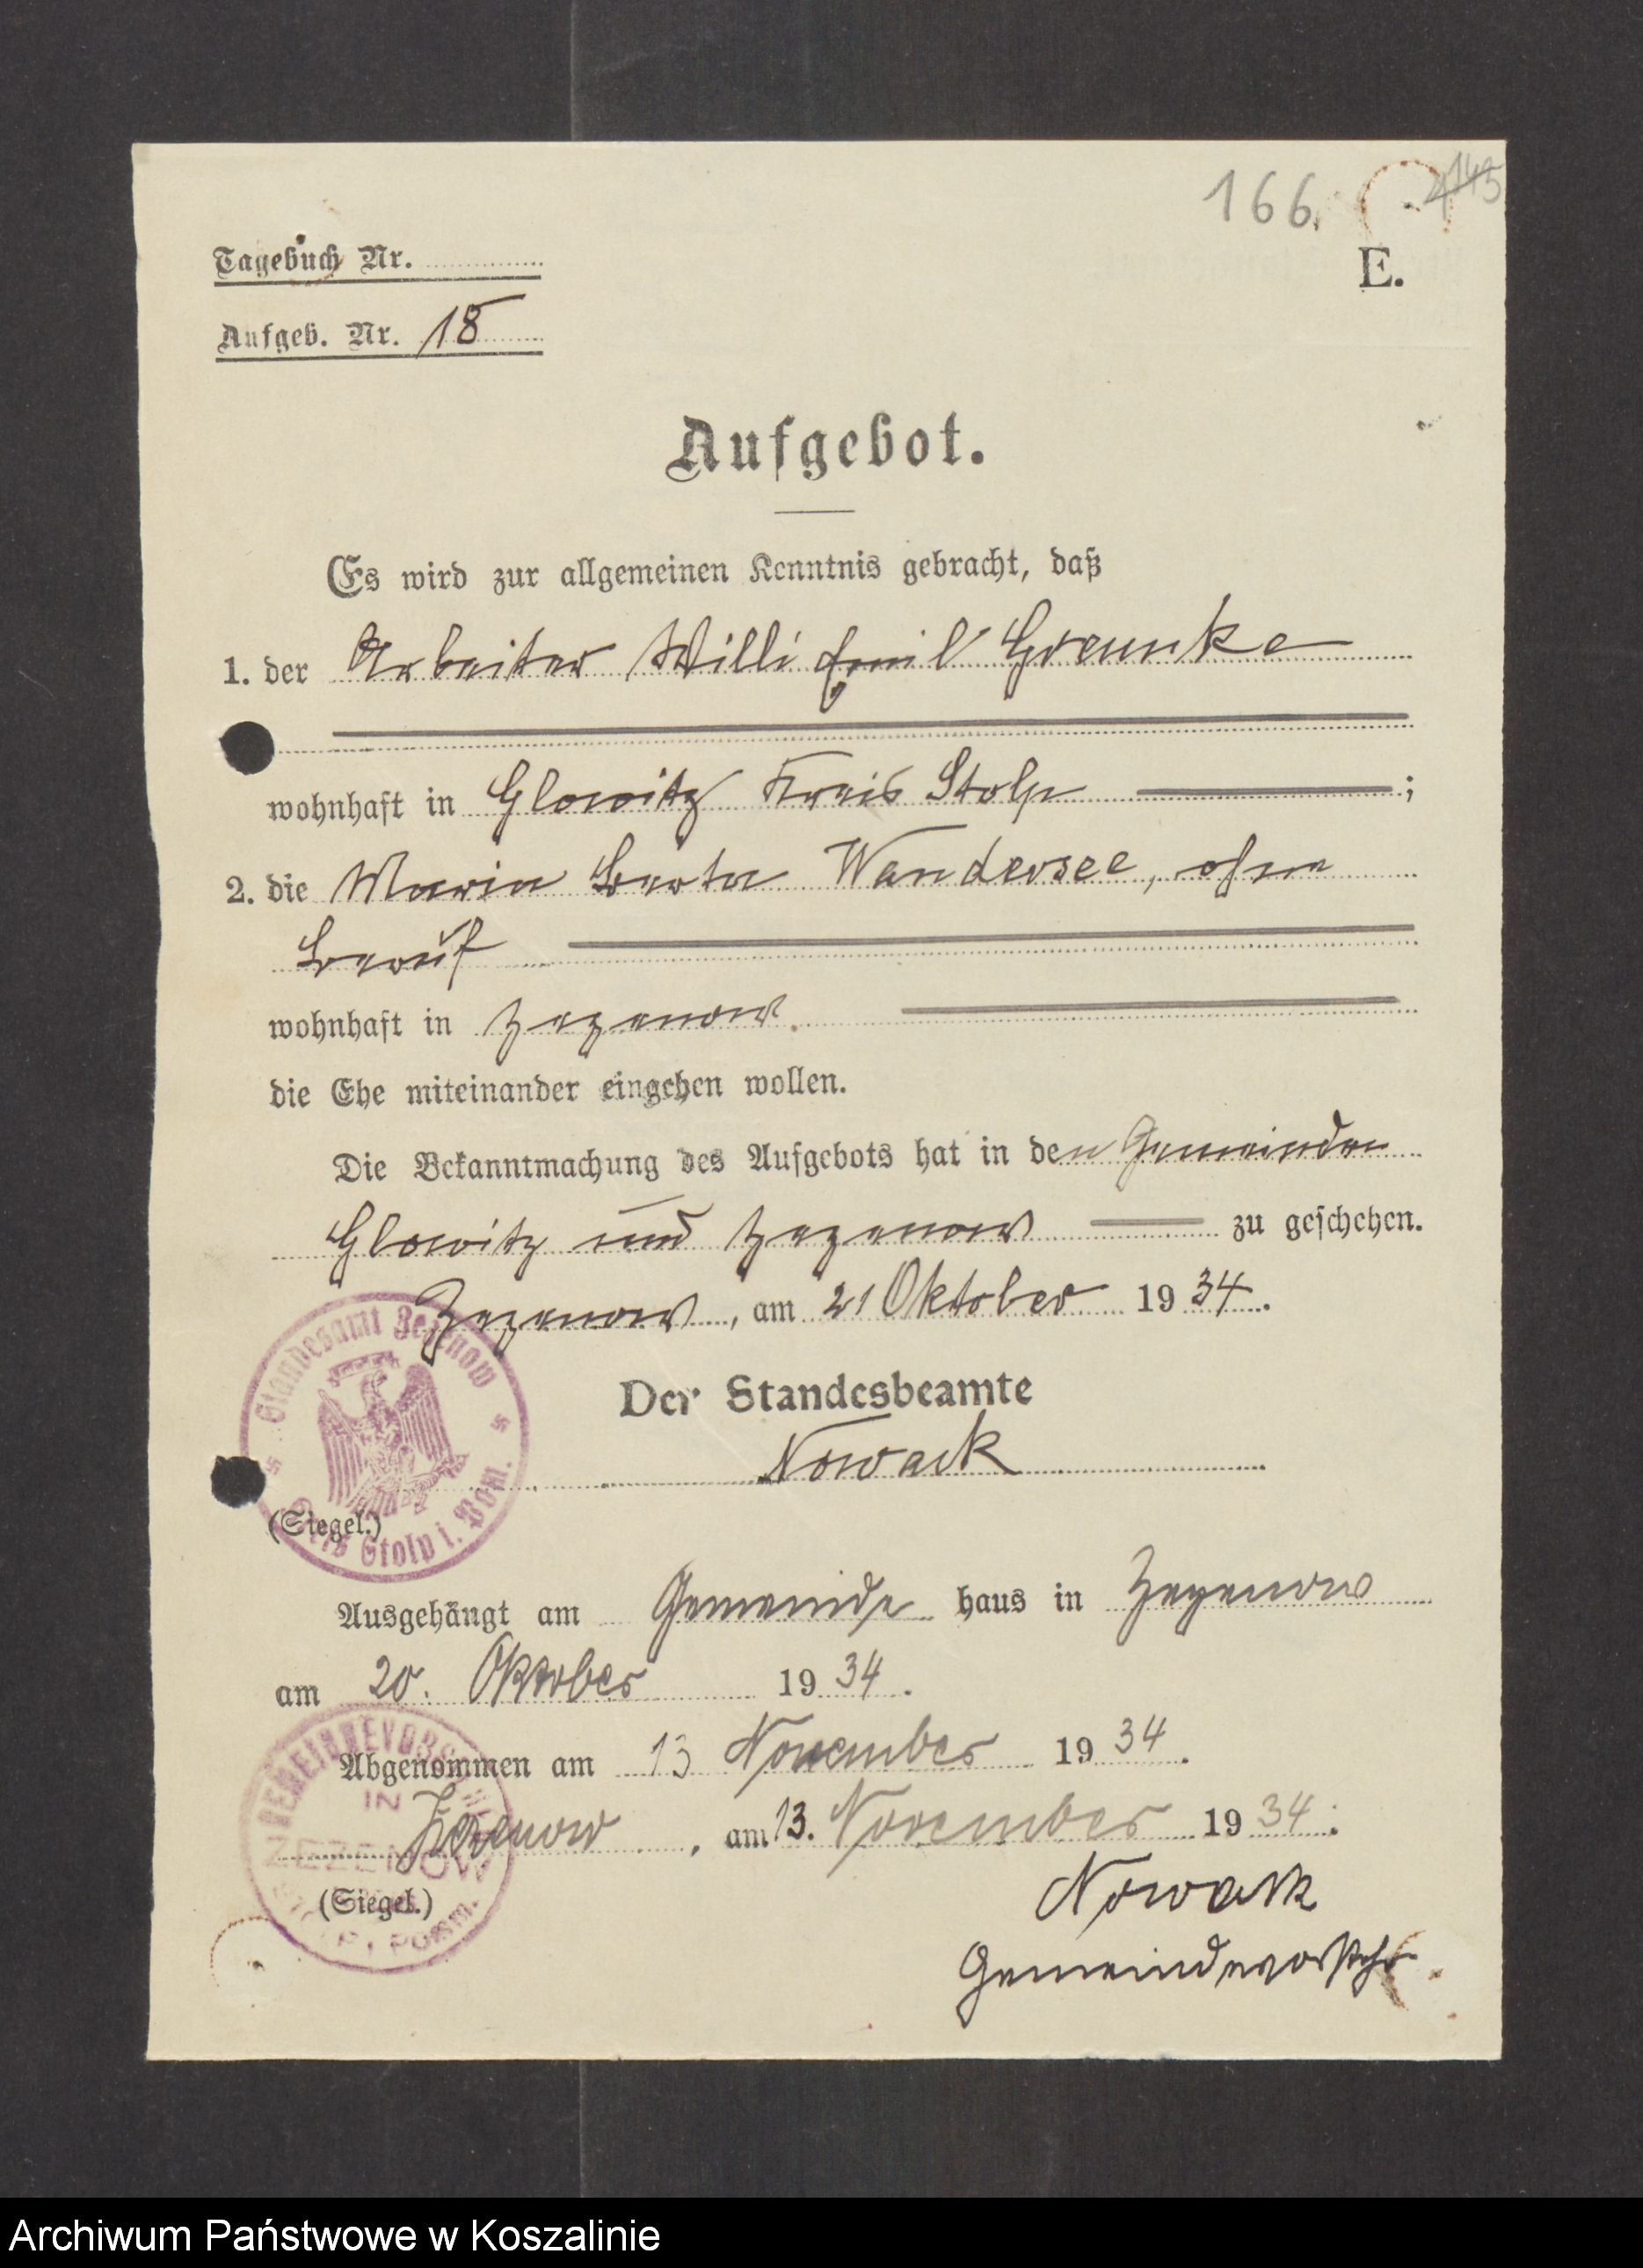 166. 143
E.
Tagebuch Nr.
Aufgeb. Nr. 18
Aufgebot.
Es wird zur allgemeinen Kenntnis gebracht, daß
1. der Arbeiter Willi Emil Greunke
wohnhaft in Glowitz Kreis Stolp ;
2. die Maria Berta Wandersee, ohne
Beruf
wohnhaft in Zezenow.
die Ehe miteinander eingehen wollen.
Die Bekanntmachung des Aufgebots hat in den Gemeinden
Glowitz und Zezenow zu geschehen.
Zezenow, am 21 Oktober 1934.
Standesamt Zezenow
Kreis Stolp i. Pom.
Der Standesbeamte
Nowack
(Siegel.)
Ausgehängt am Gemeinde haus in Zezenow
am 20. Oktober 1934.
Abgenommen am 13 November 1934.
Zezenow, am 13. November 1934.
IN
ZEZENOW
(Siegel.)
Nowack
Gemeindevorsteher
Archiwum Państwowe w Koszalinie